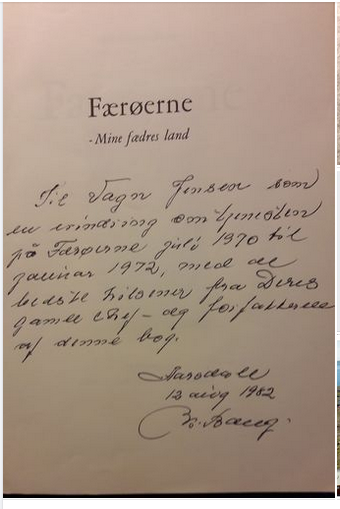 Færøerne
- Mine fædres land
Til Vagn Jensen som
en erindring om tjenesten
på Færøerne juli 1970 til
januar 1972, med de
bedste hilsener fra Deres
gamle chef - og forfatteren
af denne bog.
Aarsdale
12 aug 1982
Bang.